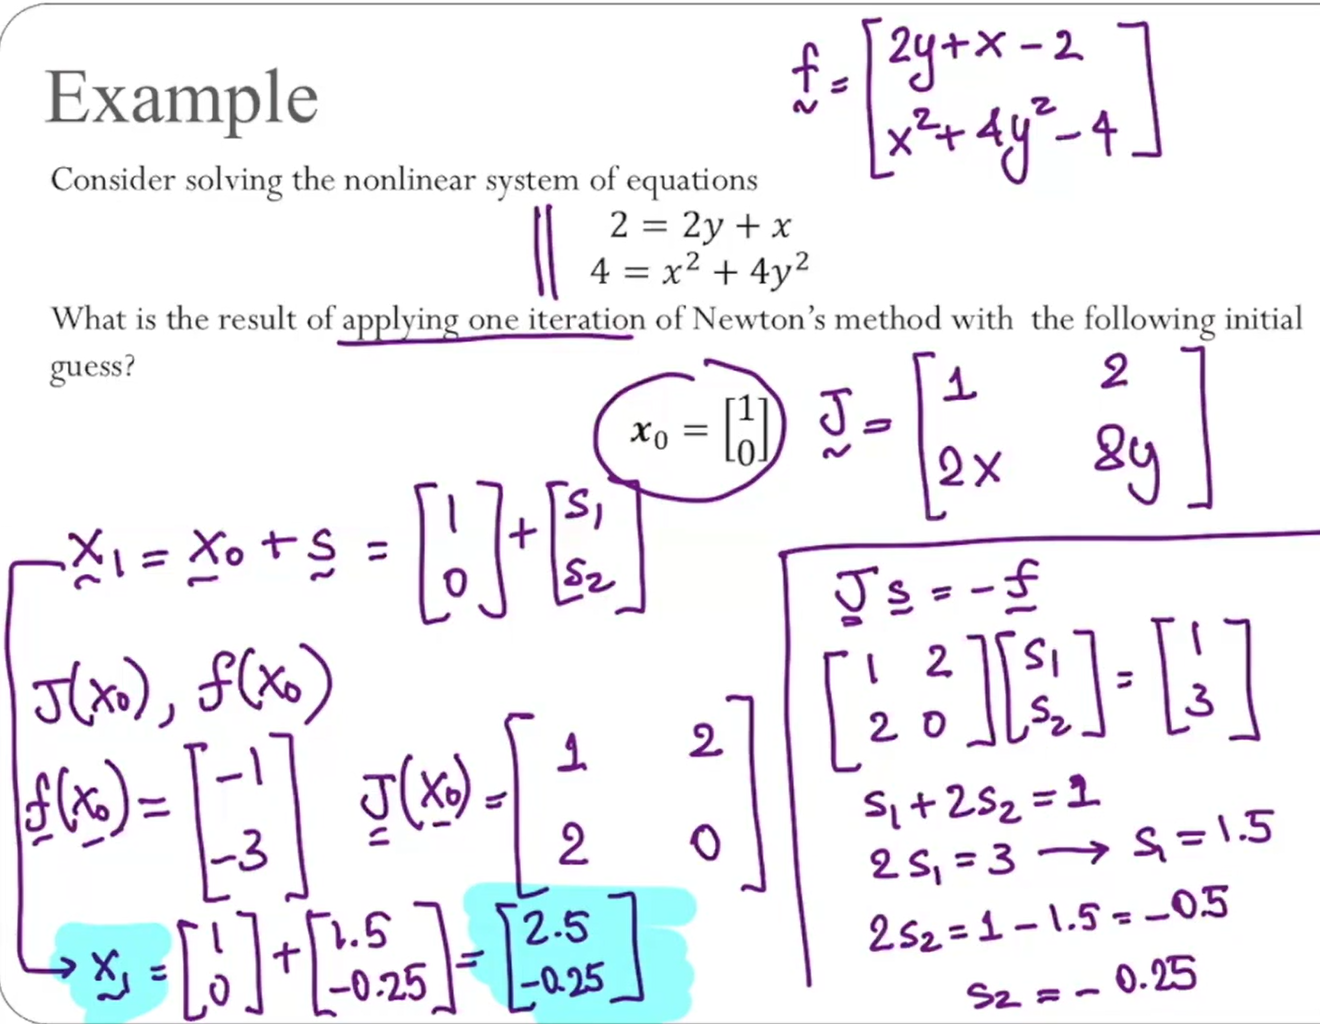 Example
f = [2y+x-2
x²+4y²-4]
Consider solving the nonlinear system of equations
2 = 2y + x
4 = x² + 4y²
What is the result of applying one iteration of Newton's method with the following initial
guess?
x₀ = [1
0]
J = [1 2
2x 8y]
x₁ = x₀ + s = [1
0] + [s₁
s₂]
J(x₀), f(x₀)
f(x₀) = [-1
-3]
J(x₀) = [1 2
2 0]
x₁ = [1
0] + [1.5
-0.25] = [2.5
-0.25]
J s = -f
[1 2
2 0] [s₁
s₂] = [1
3]
s₁ + 2s₂ = 1
2s₁ = 3 → s₁ = 1.5
2s₂ = 1 - 1.5 = -0.5
s₂ = -0.25